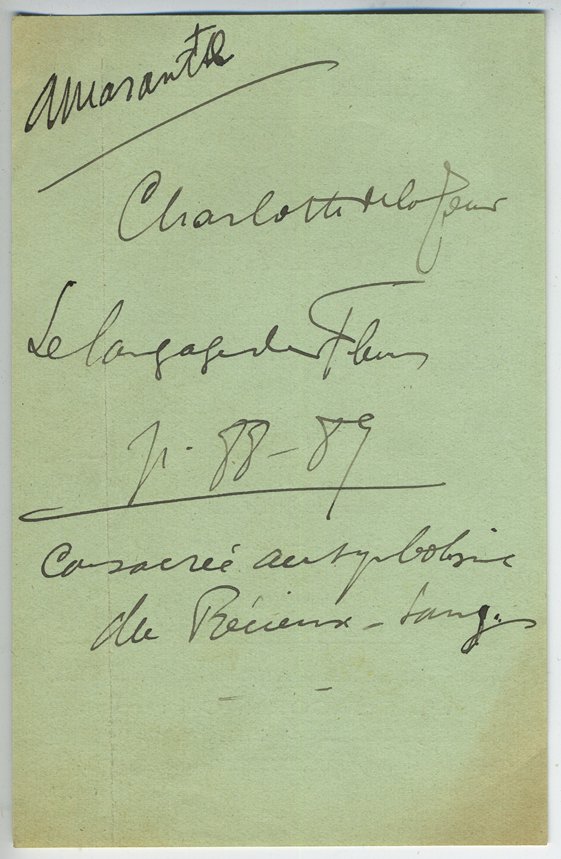 Amarante
Charlotte de la Tour
Le langage des Fleurs
p. 88-89
Consacrée au symbolisme
du Précieux-Sang.